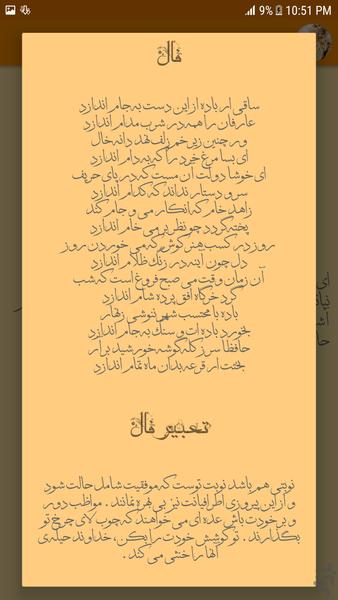 9% 10:51 PM
فال
ساقی ار باده از این دست به جام اندازد
عارفان را همه در شرب مدام اندازد
ور چنین زیر خم زلف نهد دانه خال
ای بسا مرغ خرد را که به دام اندازد
ای خوشا دولت آن مست که در پای حریف
سر و دستار نداند که کدام اندازد
زاهد خام که انکار می و جام کند
پخته گردد چو نظر بر می خام اندازد
روز در کسب هنر کوش که می خوردن روز
دل چون آینه در زنگ ظلام اندازد
آن زمان وقت می صبح فروغ است که شب
گرد خرگاه افق پرده شام اندازد
باده با محتسب شهر ننوشی زنهار
بخورد باده ات و سنگ به جام اندازد
حافظا سر ز کله گوشه خورشید برآر
بختت ار قرعه بدان ماه تمام اندازد
تعبیر فال
نوبتی هم باشد نوبت توست که موفقیت شامل حالت شود
و از این پیروزی اطرافیانت نیز بی بهره نمانند . مواظب دور
و بر خودت باش عده ای می خواهند که چوب لای چرخ تو
بگذارند . تو کوشش خودت را بکن، خداوند حیله ی
آنها را خنثی می کند .